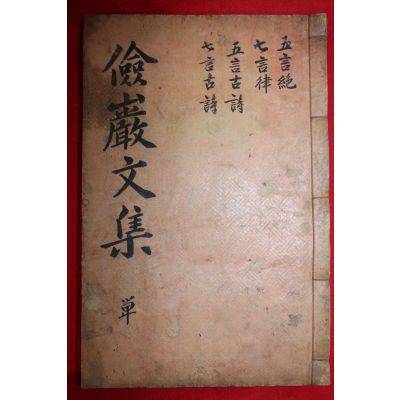 五言絶
七言律
五言古詩
七言古詩
儉巖文集
单